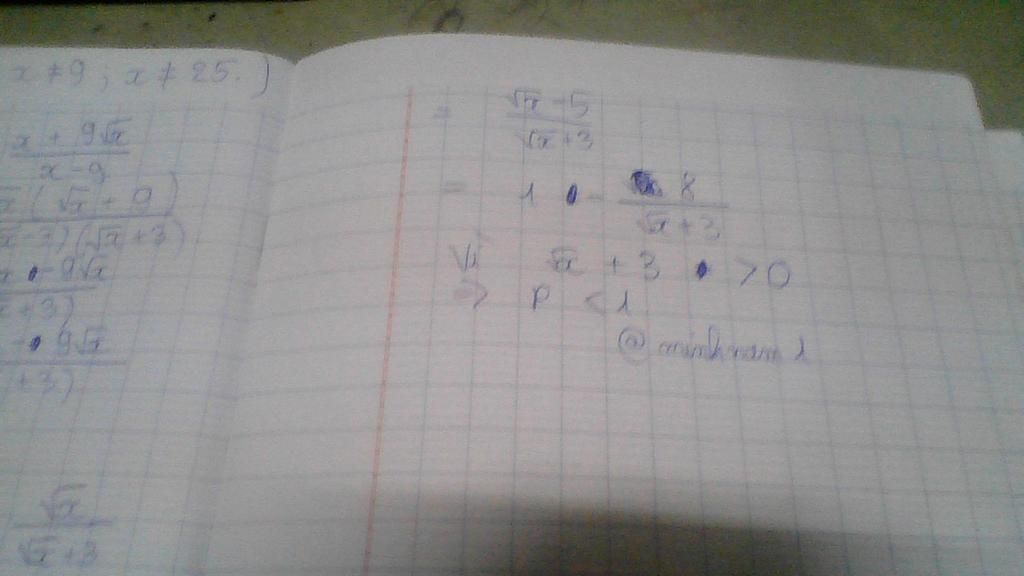 x ≠ 9 ; x ≠ 25. )
x + 9√x
x - 9
√x ( √x + 9 )
√x - 3) (√x + 3)
- 9√x
+ 3)
- 9√x
+ 3)
√x
√x + 3
= √x - 5
√x + 3
= 1 - 8
√x + 3
Vì √x + 3 > 0
=> P < 1
@minhnam1